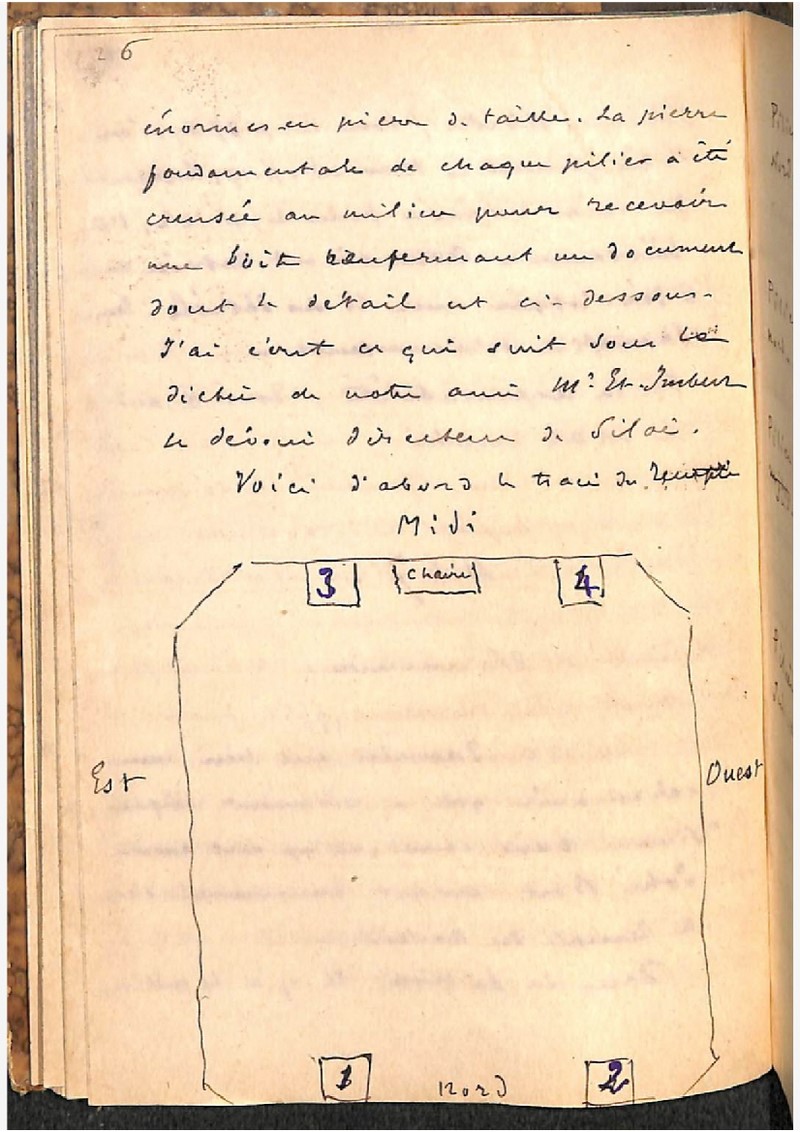 26
énormes en pierre de taille. La pierre
fondamentale de chaque pilier a été
creusée au milieu pour recevoir
une boîte renfermant un document
dont le détail est ci-dessous.
J'ai écrit ce qui suit sous la
dictée de notre ami Mr. Et. Imbert
le dévoué directeur de Siloé.
Voici d'abord le tracé du Temple
Midi
3 Chaire 4
Est
Ouest
1 Nord 2